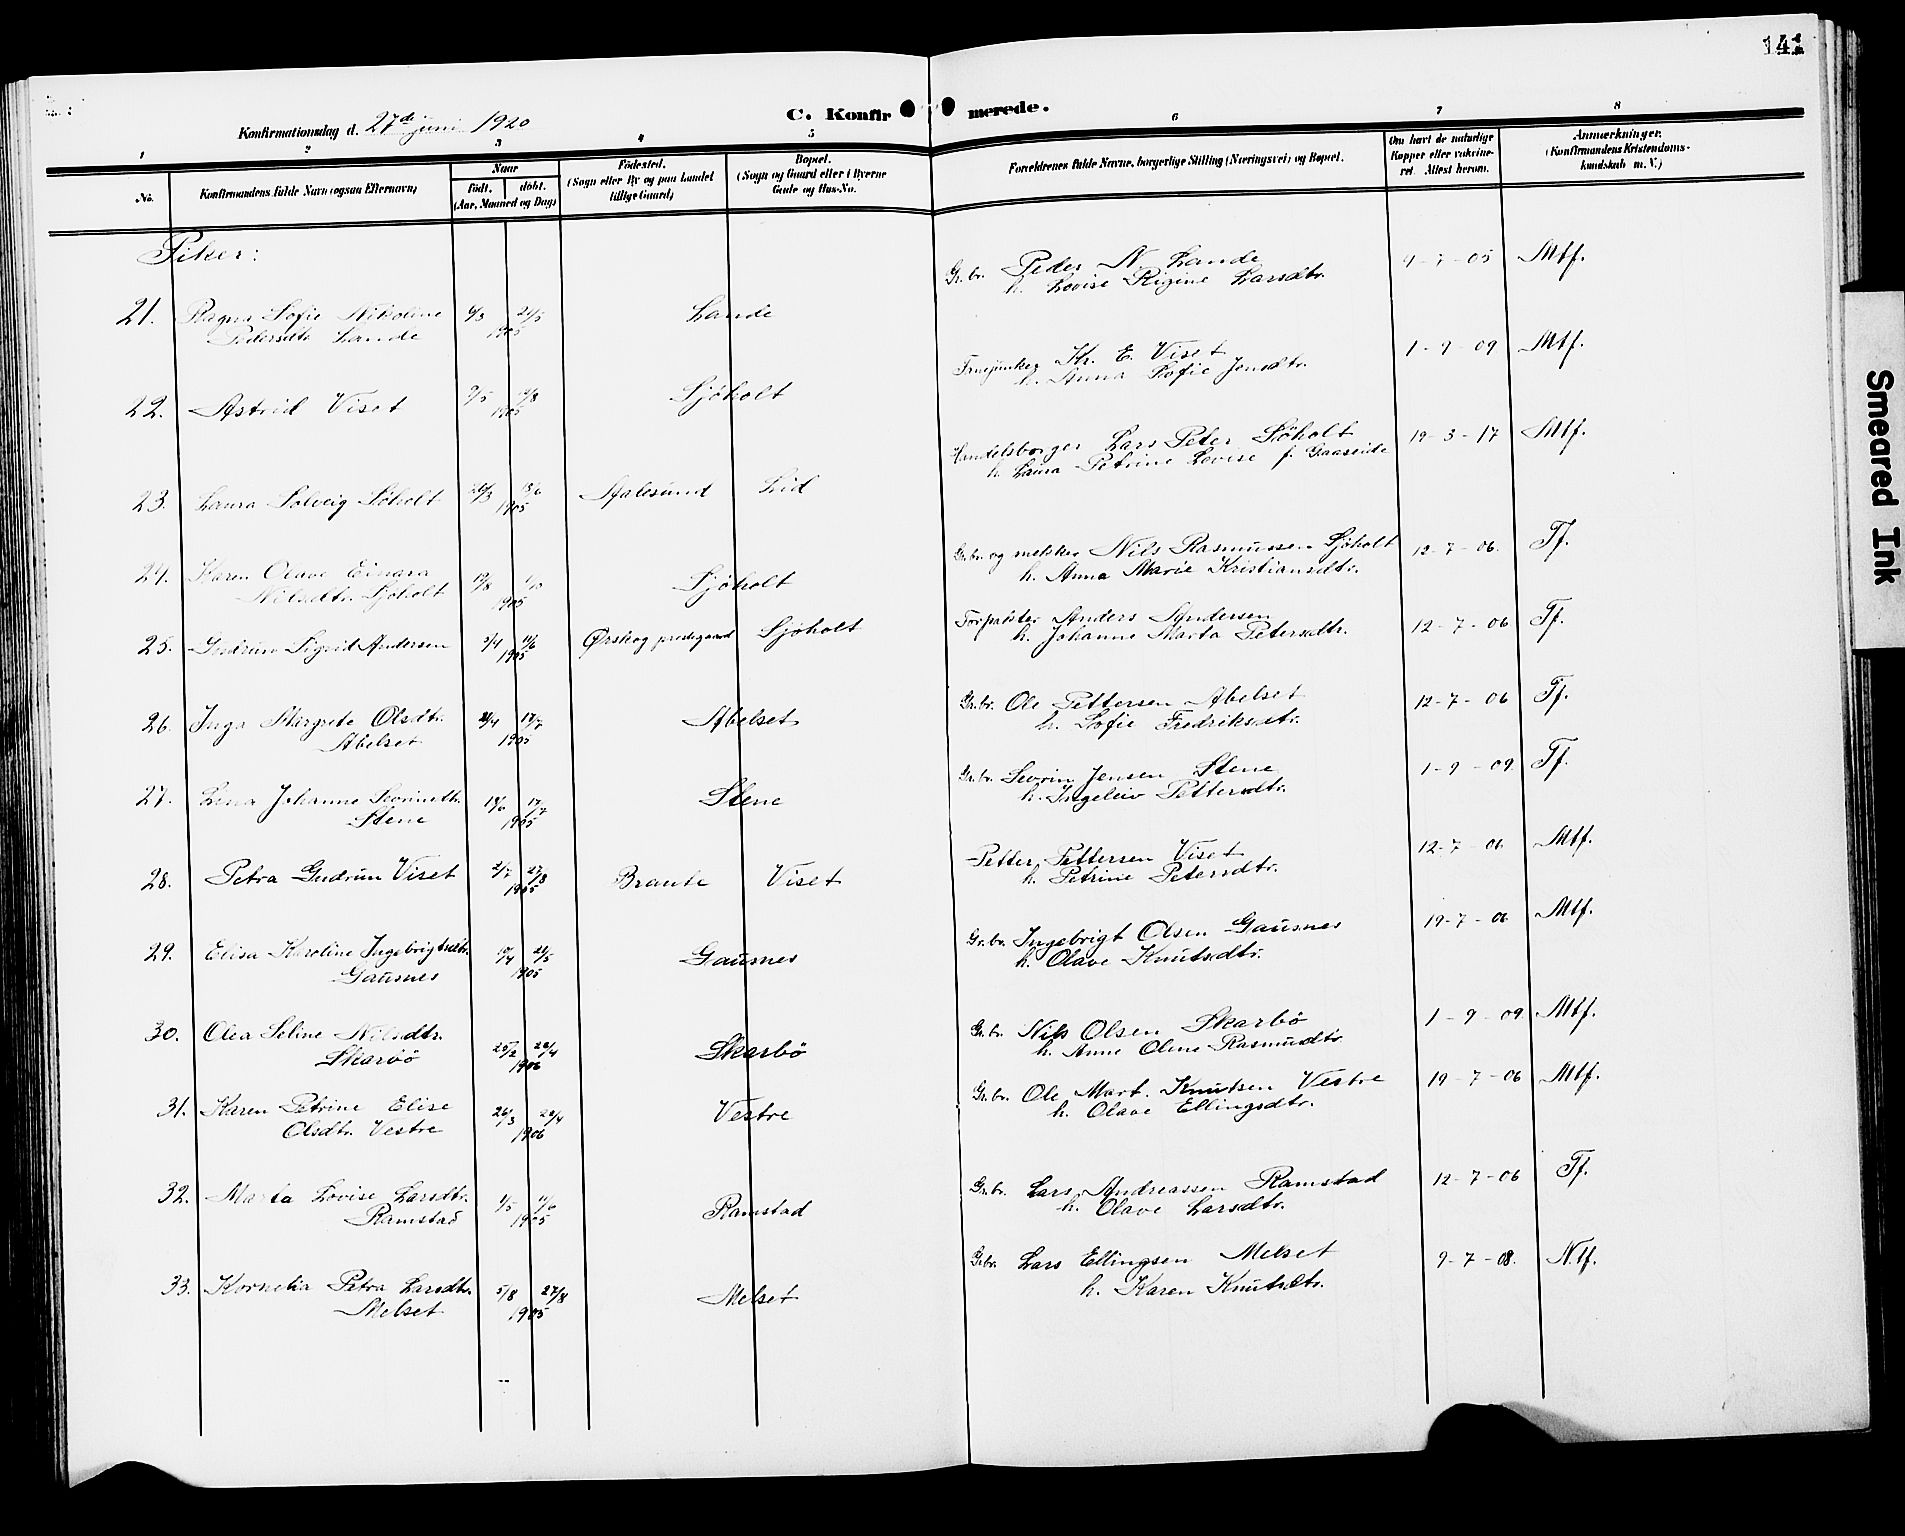 141
C. Konfirmerede.
Konfirmationsdag d. 27de juni 1920
1 2 3 4 5 6 7 8
No.
Konfirmandens fulde Navn (ogsaa Efternavn)
Naar
födt. döbt.
(Aar, Maaned og Dag)
Födested.
(Sogn eller By og paa Landet
tillige Gaard)
Bopæl.
(Sogn og Gaard eller i Byerne
Gade og Hus-No.
Forældrenes fulde Navne, borgerlige Stilling (Næringsvei) og Bopæl.
Om havt de naturlige
Kopper eller vakcine-
ret. Attest herom.
Anmærkninger.
(Konfirmandens Kristendoms-
kundskab m. V.)
Piker:
21. Ragna Sofie Nikoline
Pedersdtr Lande
1905
Lande
Gr.br. Peder N. Lande
h. Lovise Regine Larsdtr.
9-7-05 Mtf.
22. Astrid Viset
1905
Sjöholt
Kr. E. Viset
h. Anna Sofie Jensdtr.
1-9-09 Mtf.
23. Laura Solveig Söholt
1905
Aalesund Lid
Handelsborger Lars Peter Söholt
h. Laura Petrine Lovise f. Gaaseide
19-3-17 Mtf.
24. Karen Olave Einara
Nilsdtr. Sjöholt
1905
Sjöholt
Gr.br. og melsker Nils Rasmussen Sjöholt
h. Anna Marie Kristiansdtr.
12-7-06. Tf.
25. Gudrun Sigrid Andersen
1905
Ørskog prestegaard Sjöholt
Forpakter Anders Andersen
h. Johanne Marta Petersdtr.
12-7-06 Tf.
26. Inga Margrete Olsdtr.
Abelset
1905
Abelset
Gr.br. Ole Pettersen Abelset
h. Sofie Fredriksdtr.
12-7-06 Tf.
27. Lina Johanne Severinsdtr.
Stene
1905
Stene
Gr.br. Severin Jensen Stene
h. Ingeleiv Pettersdtr.
1-9-09 Tf.
28. Petra Gudrun Viset
2/7 27/8
1905
Braute Viset
Petter Pettersen Viset
h. Petrine Petersdtr.
12-7-06 Mtf.
29. Elisa Karoline Ingebrigtsdtr.
Gausnes
1905
Gausnes
Gr.br. Ingebrigt Olsen Gausnes
h. Olave Knutsdtr.
19-7-06 Mtf.
30. Olea Seline Nilsdtr.
Skarbö
25/2 22/4
1906
Skarbö
Gr.br. Nils Olsen Skarbö
h. Anne Oline Rasmusdtr.
1-9-09 Mtf.
31. Karen Petrine Elise
Olsdtr. Vestre
26/3 22/4
1906
Vestre
Gr.br. Ole Mart. Knutsen Vestre
h. Olave Ellingsdtr.
19-7-06 Mtf.
32. Marta Lovise Larsdtr.
Ramstad
1/5 11/6
1905
Ramstad
Gr.br. Lars Andreassen Ramstad
h. Olave Larsdtr.
12-7-06 Tf.
33. Kornelia Petra Larsdtr.
Melset
5/8 27/8
1905
Melset
Gr.br. Lars Ellingsen Melset
h. Karen Knutsdtr.
9-7-08. Ntf.
Smeared Ink